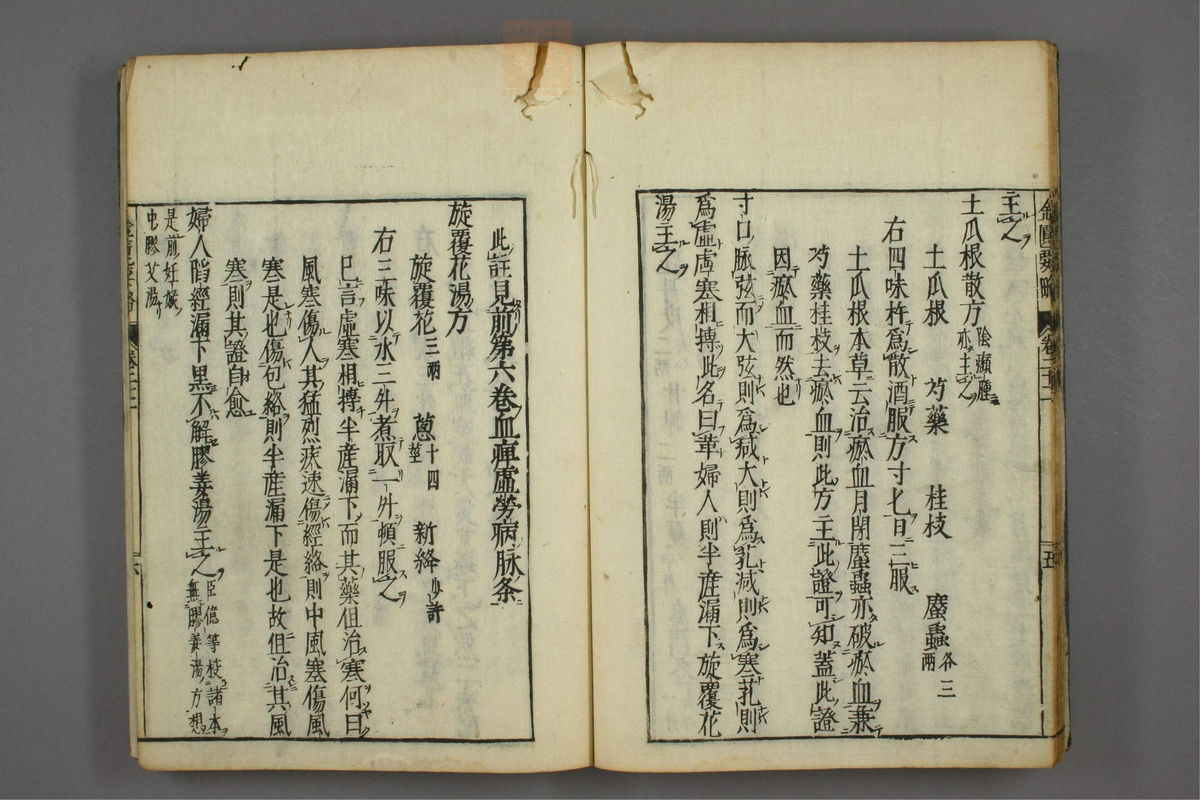 主之
土瓜根散方 陰㿗腫亦主之
土瓜根 芍藥 桂枝 䗪蟲各三兩
右四味杵爲散酒服方寸匕日三服
土瓜根本草云治瘀血月閉䗪蟲亦破瘀血兼
芍藥桂枝去瘀血則此方主此證可知蓋此證
因瘀血而然也
寸口脉弦而大弦則爲減大則爲芤減則爲寒芤則
爲虛虛寒相摶此名曰革婦人則半産漏下旋覆花
湯主之
此註見前第六卷血痺虛勞病脉条
旋覆花湯方
旋覆花三兩 蔥十四莖 新絳少許
右三味以水三升煮取一升頓服之
已言虛寒相摶半産漏下而其藥但治寒何曰
風寒傷人其猛烈疾速傷經絡則中風寒傷風
寒是也傷包絡則半産漏下是也故但治其風
寒則其證自愈
婦人陷經漏下黒不解膠姜湯主之 臣億等校諸本無膠姜湯方想
是前妊娠中膠艾湯
五